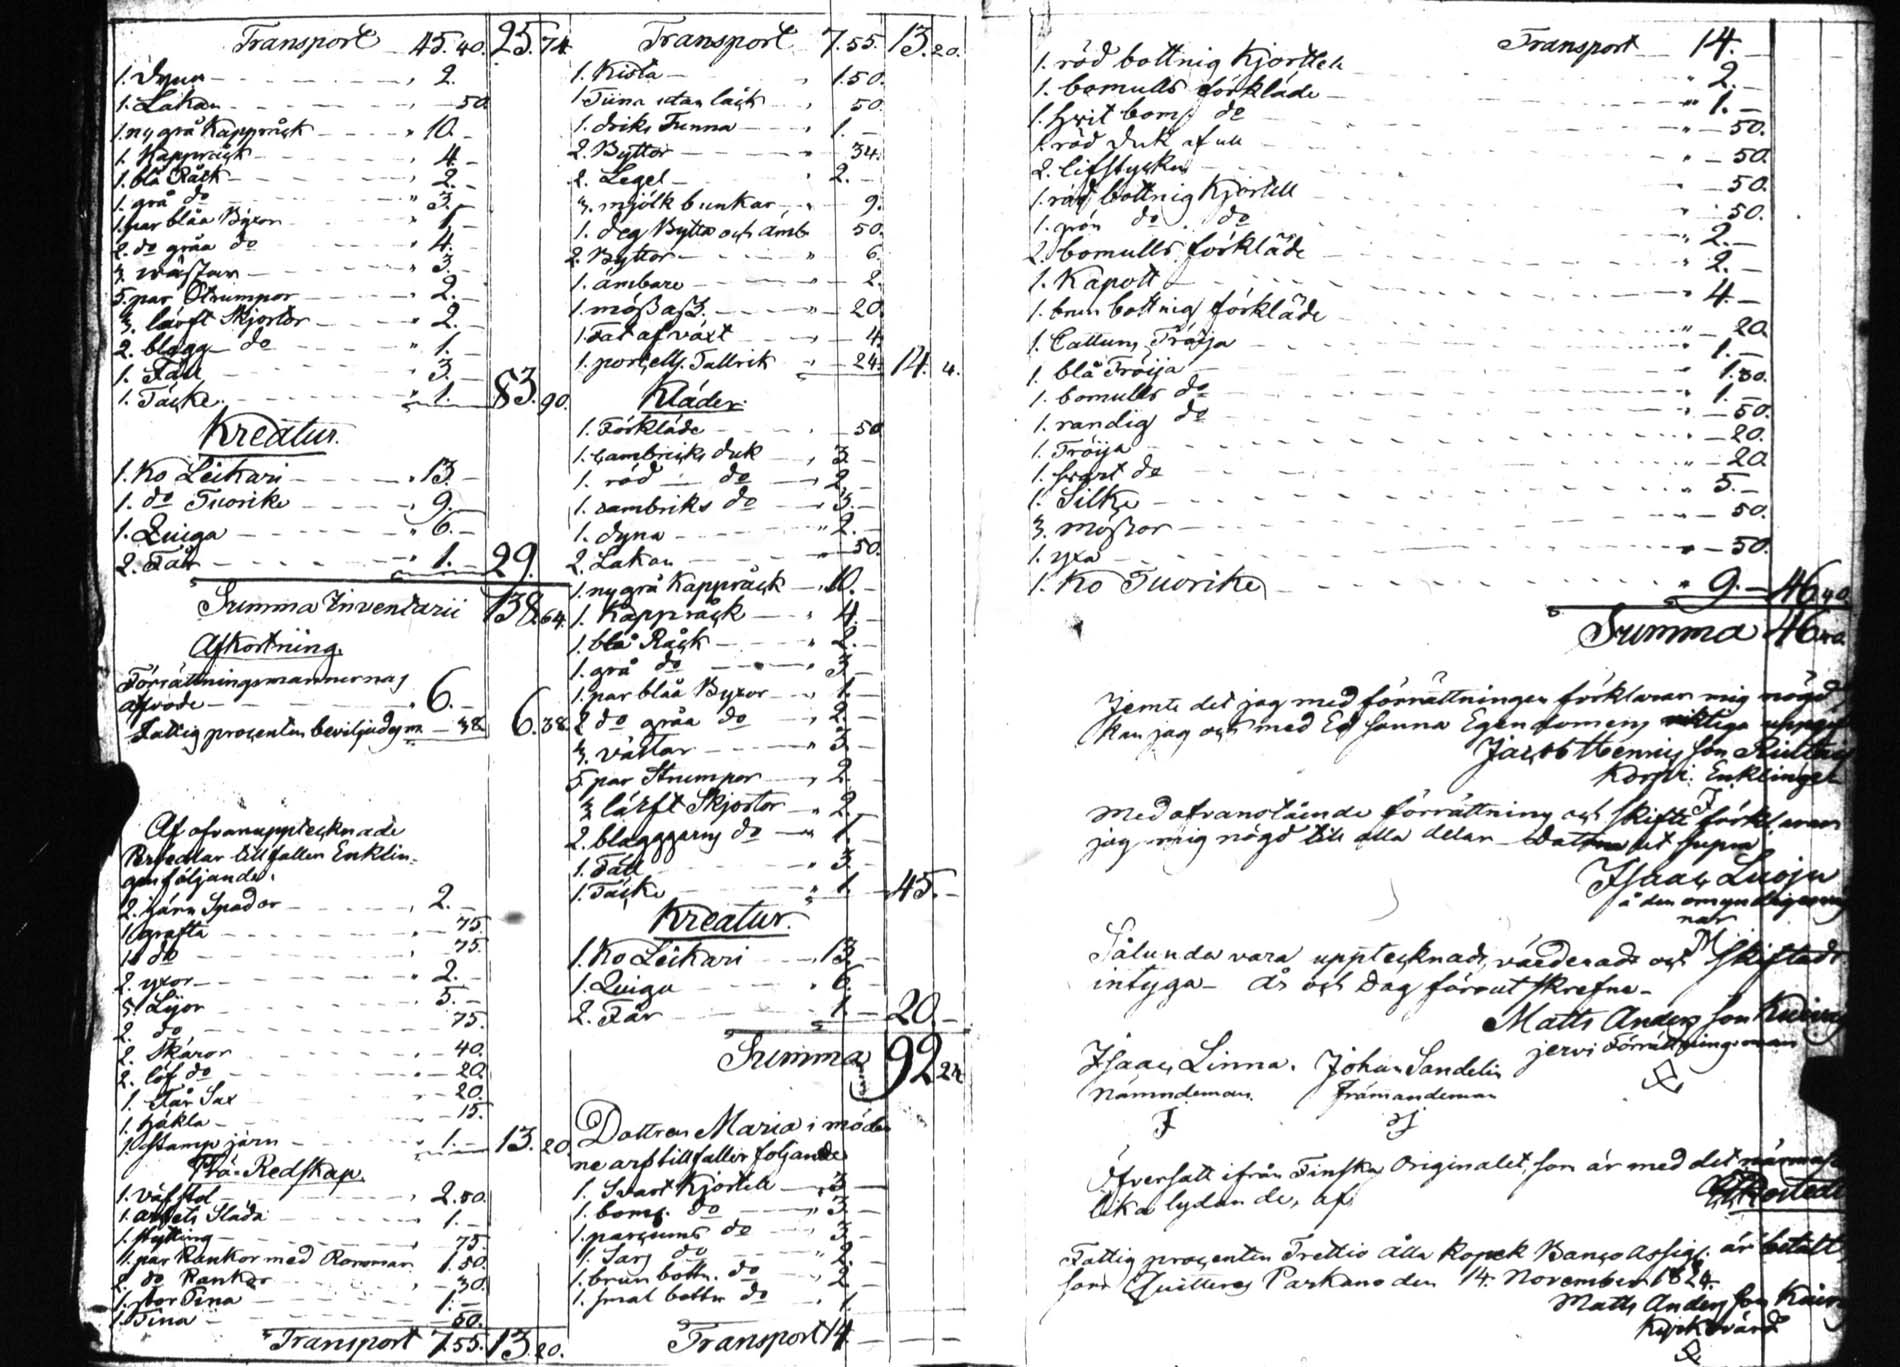 Transport 45. 40. 25. 74.
1. dyna 2. -
1. Lakan - 50.
1. ny grå Kappråck 10. -
1. Kappråck 4. -
1. blå Råck 2. -
1. grå do 3. -
1. par blåa Byxor 1. -
2. do gråa do 4. -
3. wästar 3. -
5. par Strumpor 2. -
3. lärft Skjortor 2. -
2. blagg do 1. -
1. Fäll 3. -
1. Täcke 1. - 83. 90.
Kreatur.
1. Ko Leikari 13. -
1. do Tuorike 9. -
1. Quiga 6. -
2. Får 1. - 29. -
Summa Inventarii 138. 64.
Afkortning.
Förrättningsmannernas
arfvode 6. -
Fattig procenten beviljades m - 38. 6. 38.
Af ofvanupptecknade
Persedlar tillfaller Enklin-
gen följande.
2. järn Spador 2. -
1. grafta - 75.
1. do - 75.
2. yxor 2. -
5. Lijor 5. -
2. do - 75.
2. Skäror - 40.
2. löf do - 20.
1. Får Sax - 20.
1. häkla - 15.
1. Stamp järn 1. - 13. 20.
Trä-Redskap.
1. väfstol 2. 50.
1. arbets Släda 1. -
1. stytting - 75.
1. par Rankor med Rommar 1. 50.
2. do Rankor - 30.
1. stor Tina 1. -
1. Tina - 50.
Transport 7. 55. 13. 20.
Transport 7. 55. 13. 20.
1. Kista 1. 50.
1. Tiina utan låck 50.
1. driks Tunna 1. -
2. Byttor - 34.
2. Legel 2. -
3. mjölk bunkar - 9.
1. deg Bytta och ämb 50.
2. Byttor - 6.
1. ämbare - 2.
1. - 20.
1. Fat af växt - 4.
1. porcells Tallrik - 24. 14. 4.
Kläder.
1. Förkläde - 50.
1. Cambricks duk 3. -
1. röd do 2. -
1. cambriks do 3. -
1. dyna 2. -
2. Lakan - 50.
1. ny grå Kappråck 10. -
1. Kappråck 4. -
1. blå Råck 2. -
1. grå do 3. -
1. par blåa Byxor 1. -
2 do gråa do 2. -
3. västar 3. -
5. par Strumpor 2. -
3 lärft Skjortor 2. -
2. blagggarns do 1. -
1. Fäll 3. -
1. Täcke 1. - 45. -
Kreatur.
1. Ko Leikari 13. -
1. Quiga 6. -
2. Får 1. - 20. -
Summa 92. 24
Dottren Maria i möder
ne arf tillfaller följande
1. Svart Kjortell 3 -
1. boms. do 3 -
1. do 3 -
1. Sars do 2 -
1. brun bottn. do 2 -
1. smal bottn do 1.
Transport 14. -
Transport 14. -
1. röd bottnig Kjortell 2. -
1. bomulls förkläde 1. -
1. hvit boms do - 50.
1. röd duk af ull - 50.
2. lifstycken - 50.
1. röd bottnig Kjortell - 50.
1. grön do do 2. -
2. bomulls förkläde 2. -
1. Kapott 4. -
1. brun bottnig förkläde - 20.
1. Cattuns Tröija 1. -
1. blå Tröija 1. 50.
1. bomulls do 1. -
1. randig do - 50.
1. Tröija - 20.
1. svart do - 20.
1. Silke 5. -
3. mössor - 50.
1. yxa - 50.
1. Ko Tuorike 9. - 46. 40.
Summa 46. 40.
Jemte det jag med förrättningen förklarar mig nögd,
kan jag och med Ed sanna Egendomens riktiga
Jacob Hennigsson
Enklingen
Med ofvanstående förrättning och skifte förklarar
jag mig nögd till alla delar Datum ut supra
Isaac Luoju
å den omyndiges
nar
Sålunda vara upptecknadt, värderadt och Skiftadt
intyga - år och Dag förut skrefne -
Matts Andersson
jervi Förrättningsman
Isaac Linna. Johan Sandelin
Nämndeman. främandeman
Öfversatt ifrån Finska Originalet, som är med det
lika lydande, af
Fattig procenten Trettio åtta kopek Banco Assign. är betalt,
som Quitteras Parkano den 14. November 1824.
Matts Andersson
Kyrkovärd